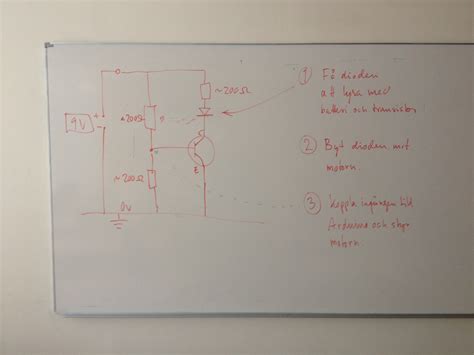 ~200Ω
9V
~200Ω
B
C
E
~200Ω
0V
① Få dioden
att lysa med
batteri och transistor
② Byt dioden mot
motorn.
③ Koppla ingången till
Arduino och styr
motorn.